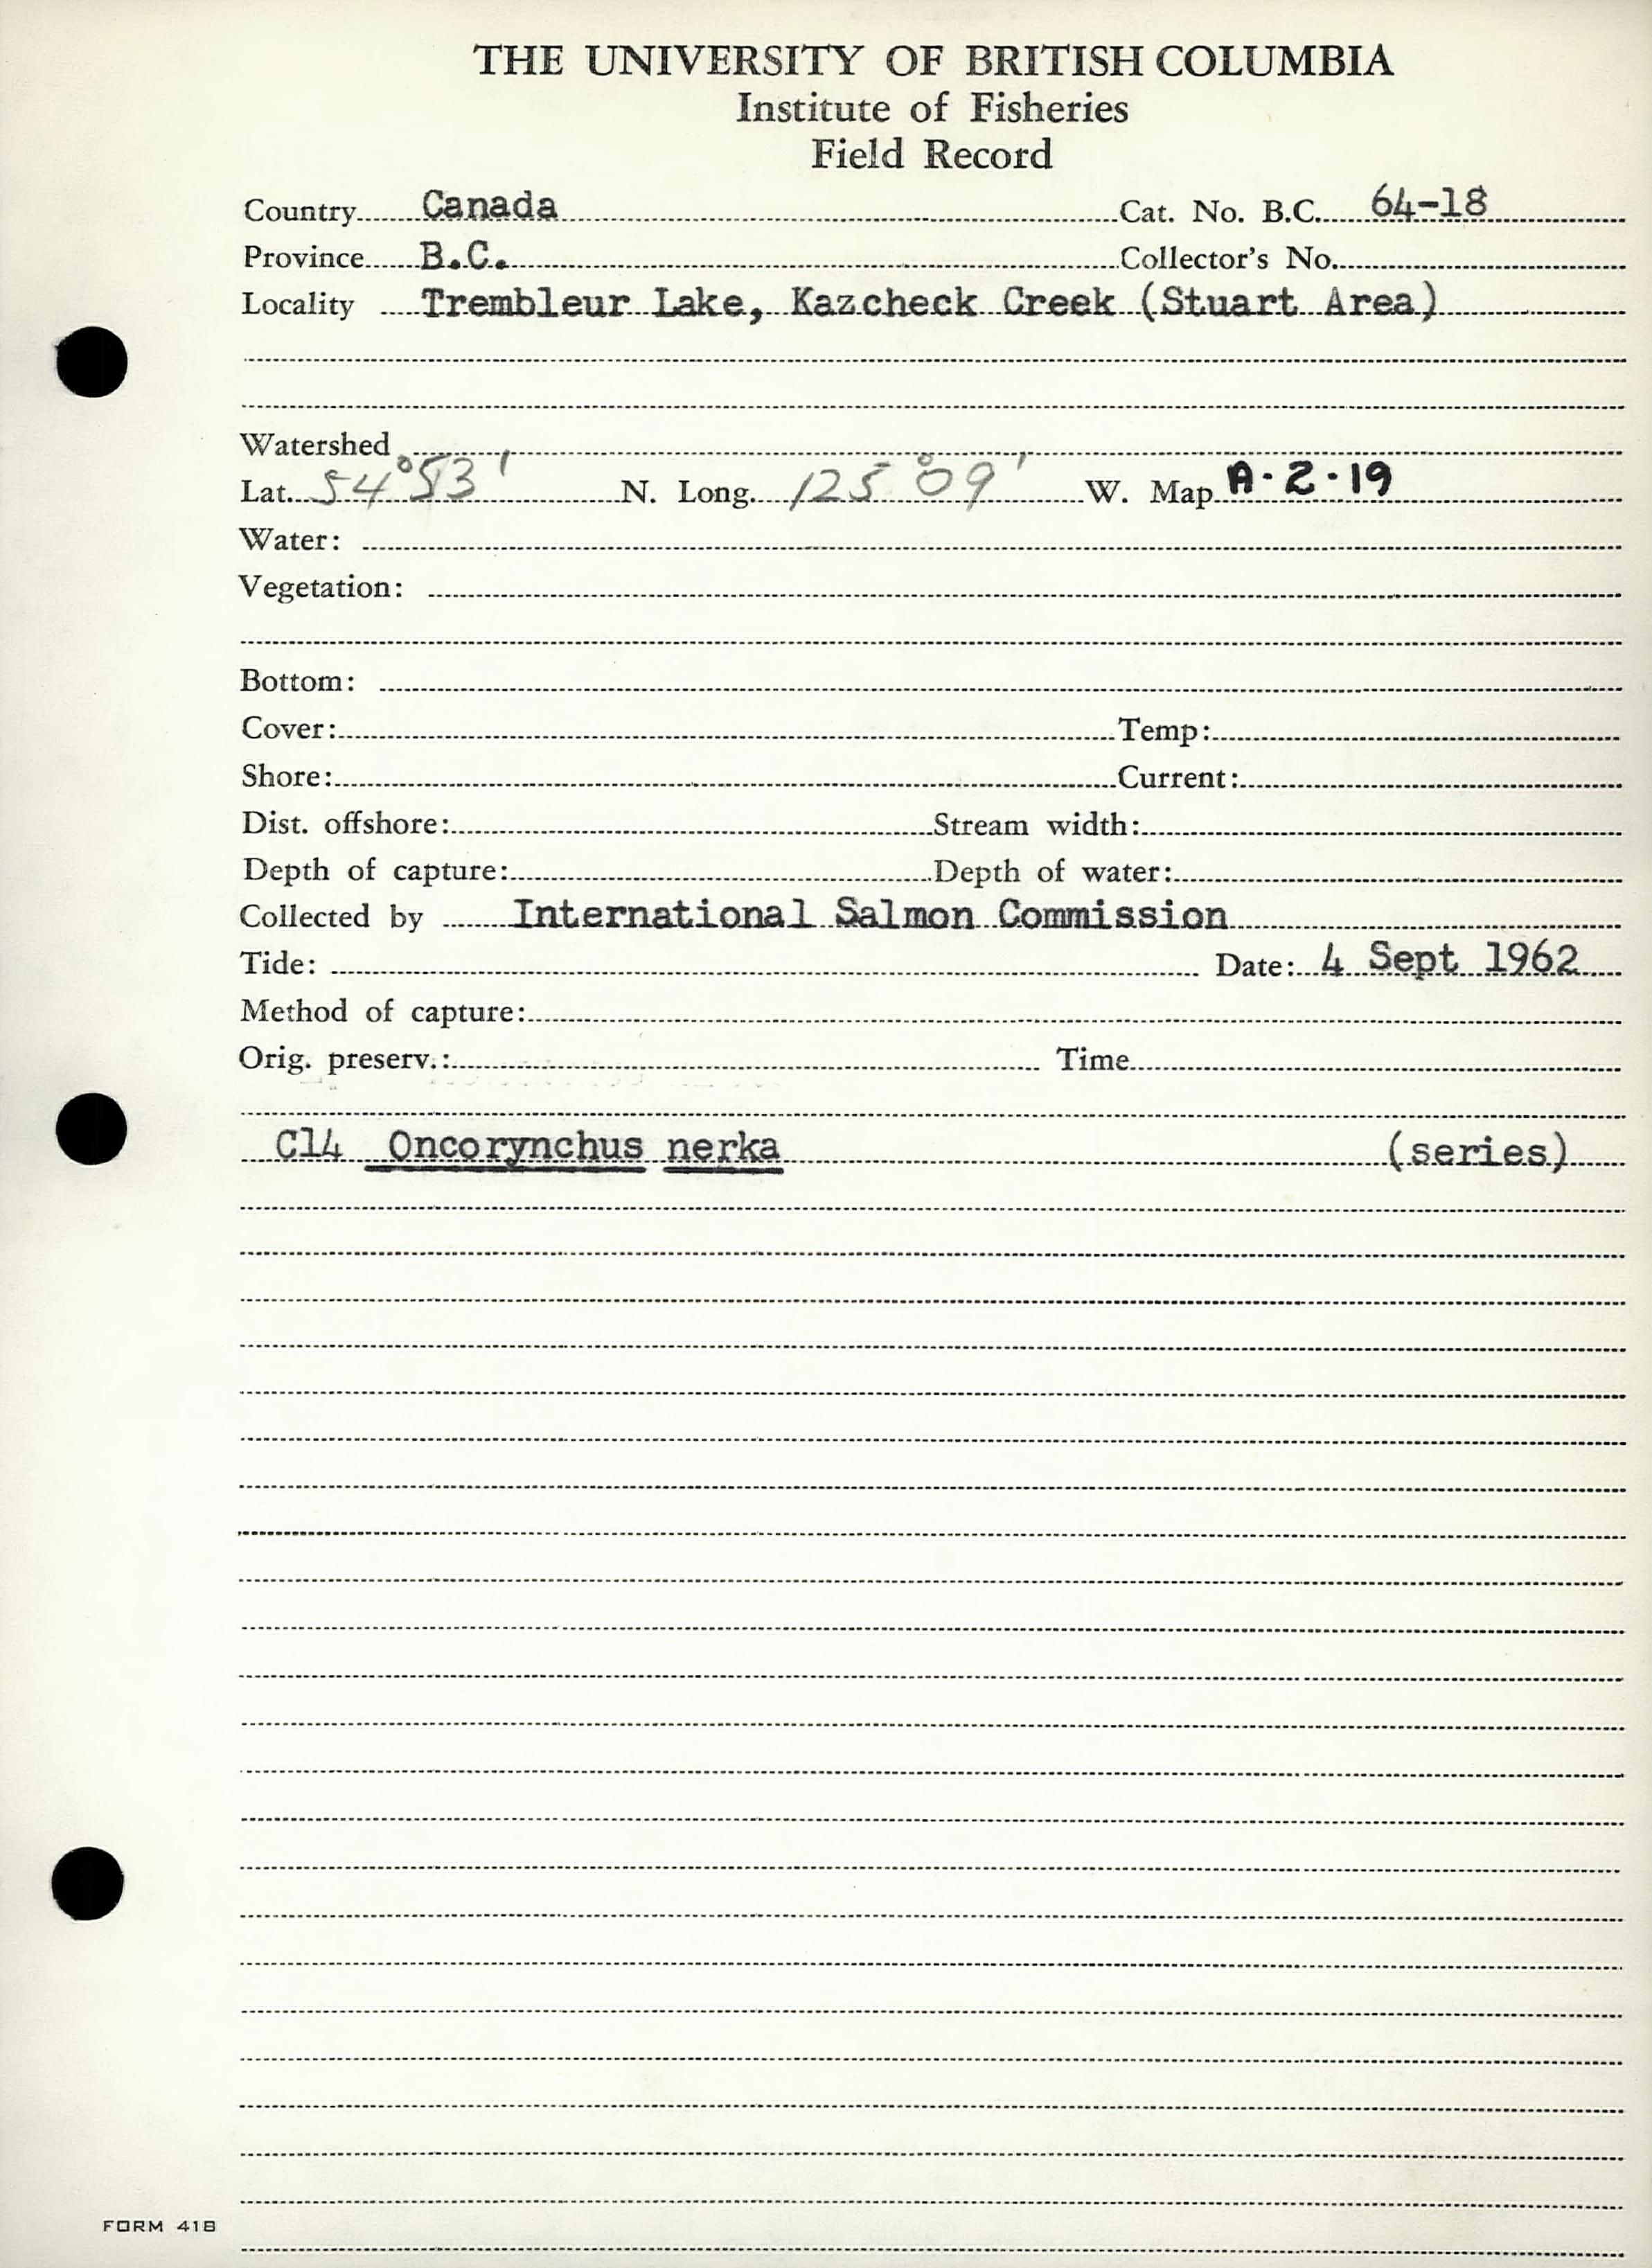 THE UNIVERSITY OF BRITISH COLUMBIA
Institute of Fisheries
Field Record
Country Canada Cat. No. B.C. 64-18
Province B.C. Collector's No.
Locality Trembleur Lake, Kazcheck Creek (Stuart Area)
Watershed
Lat. 54°53' N. Long. 125°09' W. Map A·2·19
Water:
Vegetation:
Bottom:
Cover: Temp:
Shore: Current:
Dist. offshore: Stream width:
Depth of capture: Depth of water:
Collected by International Salmon Commission
Tide: Date: 4 Sept 1962
Method of capture:
Orig. preserv.: Time
C14 Oncorynchus nerka (series)
FORM 418